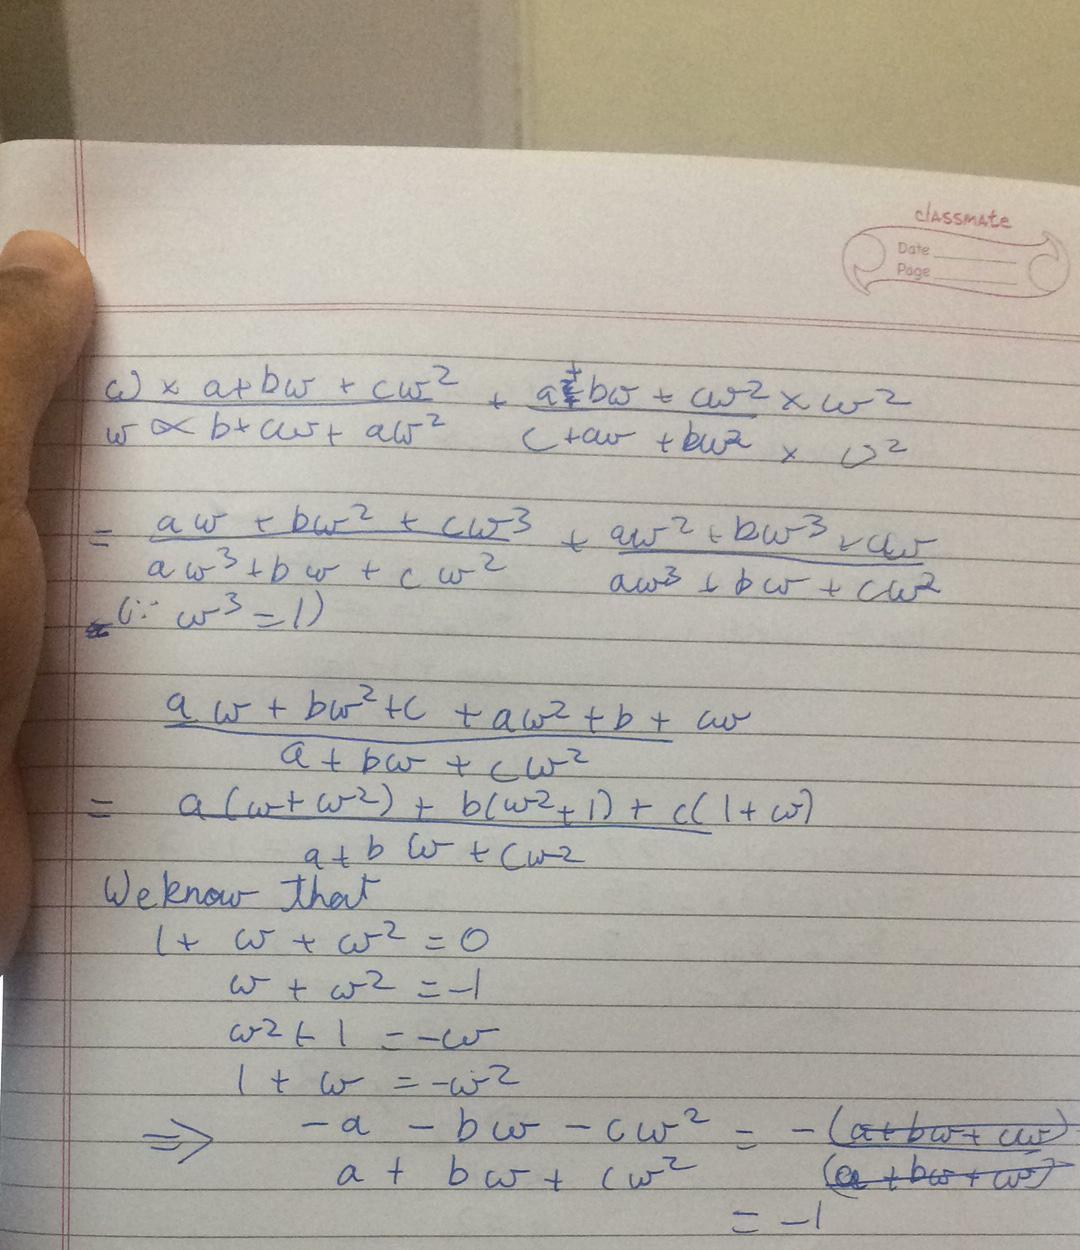 classmate
Date
Page
ω × a+bω + cω² + a+bω + cω² × ω²
ω × b+cω+ aω² c+aω +bω² × ω²
= aω + bω² + cω³ + aω² + bω³ + cω
aω³+bω + cω² aω³ + bω + cω²
(∵ ω³ = 1)
aω + bω²+c + aω² + b + cω
a + bω + cω²
= a(ω+ω²) + b(ω²+1) + c(1+ω)
a+bω + cω²
We know that
1+ ω + ω² = 0
ω + ω² = -1
ω² + 1 = -ω
1 + ω = -ω²
⇒ -a - bω - cω² = -(a+bω+cω)
a + bω + cω² (a+bω+cω)
= -1